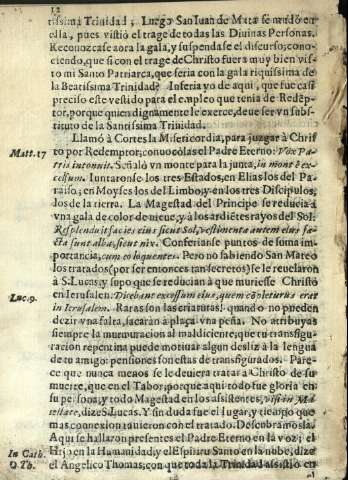 12
tissima Trinidad; Luego San Iuan de Mata se mudò en
ella, pues vistiò el trage de todas las Diuinas Personas.
Reconozcase aora la gala, y suspendase el discurso, cono-
ciendo, que si con el trage de Christo fuera muy bien vis-
to mi Santo Patriarca, que seria con la gala riquissima de
la Beatissima Trinidad? Inferia yo de aqui, que fue casi
preciso este vestido para el empleo que tenia de Redẽp-
tor, porque quien dignamente le exerce, deue ser vn subs-
tituto de la Santissima Trinidad.
Llamò à Cortes la Misericordia, para juzgar à Chris
to por Redemptor, conuocòlas el Padre Eterno: Vox Pa-
Matt. 17
tris intonuit. Señala vn monte para la junta, in mont. ex-
celsum. Iuntaronse los tres Estados, en Elias los del Pa-
raiso; en Moyses los del Limbo, y en los tres Discipulos,
los de la tierra. La Magestad del Principe se reducia à
vna gala de color de nieue, y à los ardiẽtes rayos del Sol.
Resplenduit facies eius sicut Sol, vestimenta autem eius fa-
cta sunt alba, sicut nix. Conferianse puntos de suma im-
portancia, cum eo loquentes. Pero no sabiendo San Mateo
los tratados (por ser entonces tan secretos) se le reuelaron
à S. Lucas, y supo que se reducian à que muriesse Christo
Luc. 9.
en Ierusalen. Dicebant excessum eius, quem completurus erat
in Ierusalem. Raras son las criaturas! quando no pueden
dezir vna falta, sacaràn à plaça vna peña. No atribuyas
siempre la murmuracion al maldiciente, que tu transfigu-
racion repentina puede motiuar algun desliz à la lengua
de tu amigo: pensiones son estas de transfigurados. Pare-
ce que nunca menos se le deuiera tratar à Christo de su
muerte, que en el Tabor, porque aqui todo fue gloria en
su persona, y todo Magestad en los assistentes, visi in Ma-
iestate, dize S. Lucas. Y sin duda fue el lugar, y tiempo que
mas connexion tuuieron con el tratado. Descubramosla.
Aqui se hallaron presentes el Padre Eterno en la voz; el
In Cath.
Hijo en la Humanidad, y el Espiritu Santo en la nube, dize
D. Th.
el Angelico Thomas; con que toda la Trinidad assistiò en